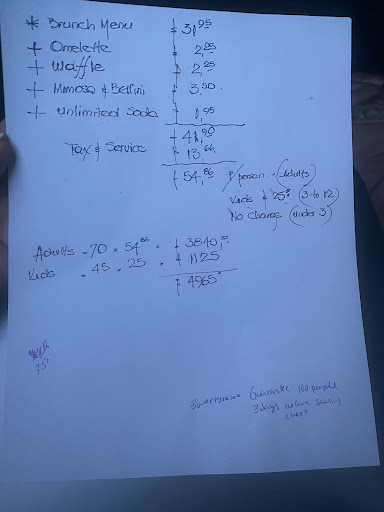 * Brunch Menu $ 31.95
+ Omelette $ 2.25
+ Waffle $ 2.25
+ Mimosa & Bellini $ 3.50
+ Unlimited Soda $ 1.95
$ 41.90
Tax & Service $ 13.66
$ 54.86 P/person - (Adults)
Kids $ 25 (3 to 12)
No Charge (Under 3)
Adults - 70 × 54.86 = $ 3840.20
Kids = 45 . 25 = $ 1125
$ 4965
35'
Guarantee 100 people
3 days before seating
chart